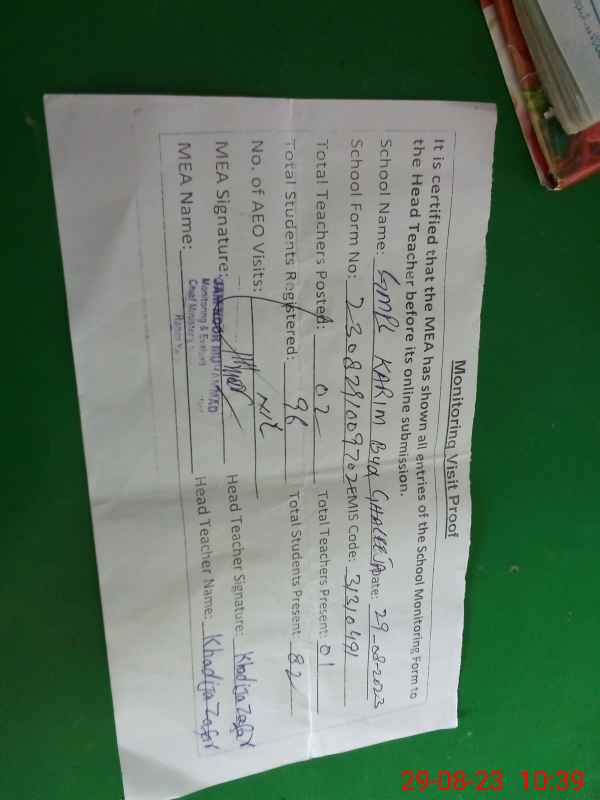 Monitoring Visit Proof
It is certified that the MEA has shown all entries of the School Monitoring Form to
the Head Teacher before its online submission.
School Name: GMPS KARIM Bux Date: 29-08-2023
School Form No: 230829100970 EMIS Code: 31310491
Total Teachers Posted: 02 Total Teachers Present: 01
Total Students Registered: 96 Total Students Present: 82
No. of AEO Visits: NIL
MEA Signature: Head Teacher Signature: Khadija Zafar
MUHAMMAD
Monitoring & Evaluati
Chief Minister's
MEA Name: Head Teacher Name: Khadija Zafar
29-08-23 10:39